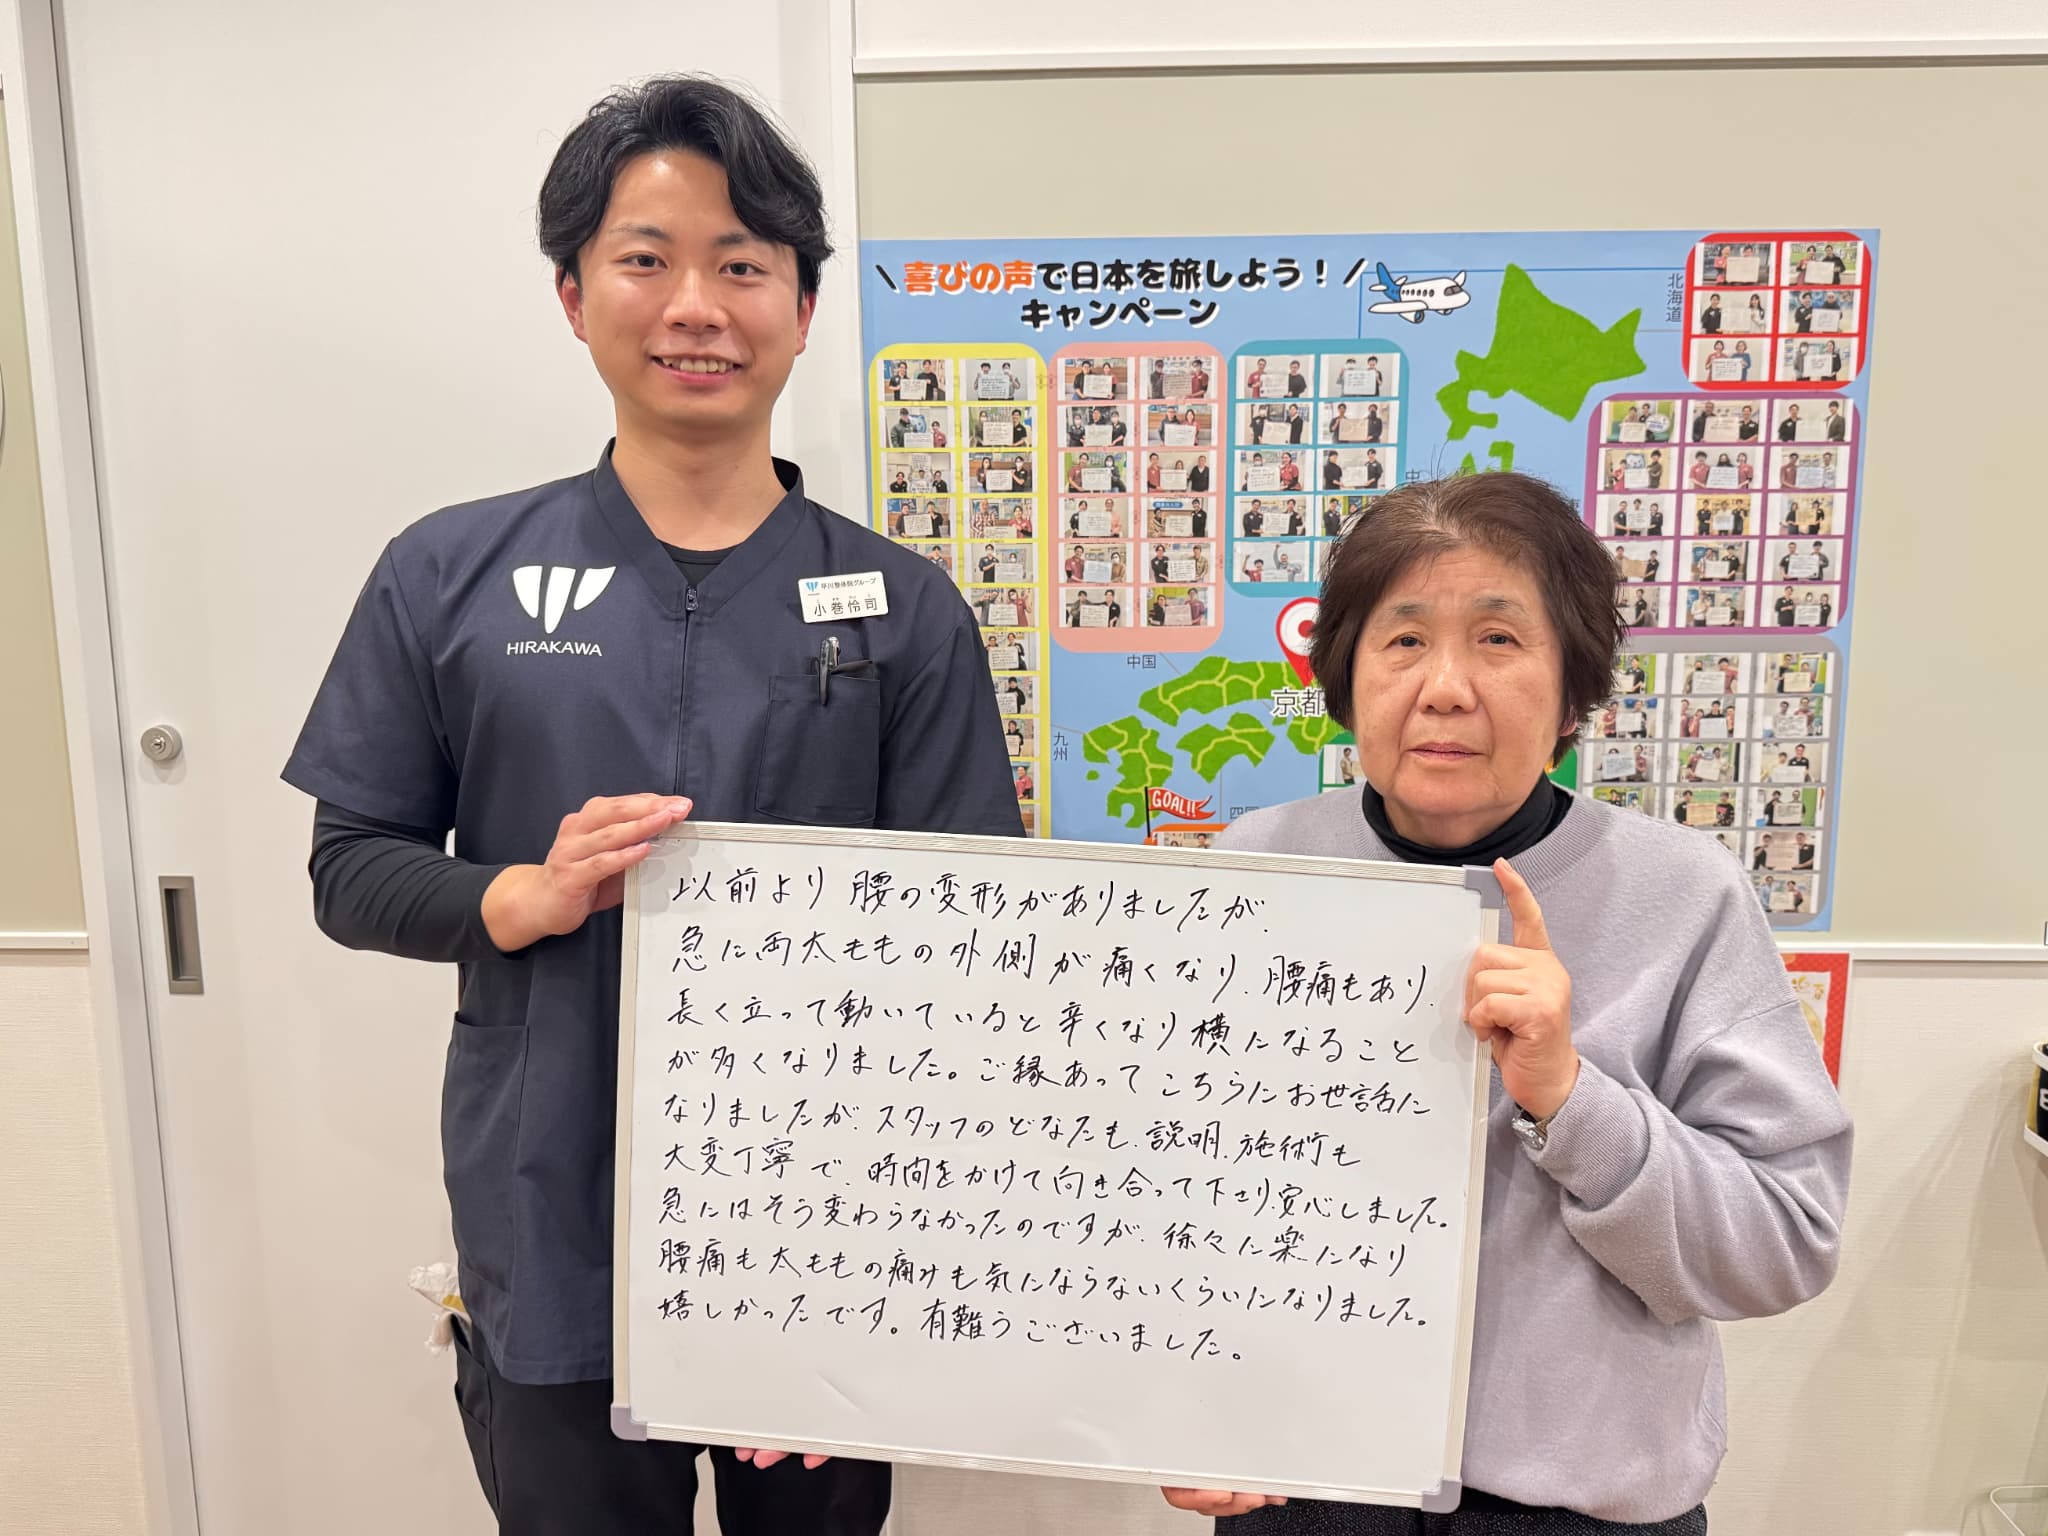 \ 喜びの声で日本を旅しよう！ /
キャンペーン
北海道
中国
京都
九州
四国
GOAL!!
HIRAKAWA
平川整体院グループ
小巻怜司
以前より腰の変形がありましたが、
急に両太ももの外側が痛くなり、腰痛もあり、
長く立って動いていると辛くなり横になること
が多くなりました。ご縁あってこちらにお世話に
なりましたが、スタッフのどなたも、説明、施術も
大変丁寧で、時間をかけて向き合って下さり、安心しました。
急にはそう変わらなかったのですが、徐々に楽になり
腰痛も太ももの痛みも気にならないくらいになりました。
嬉しかったです。有難うございました。